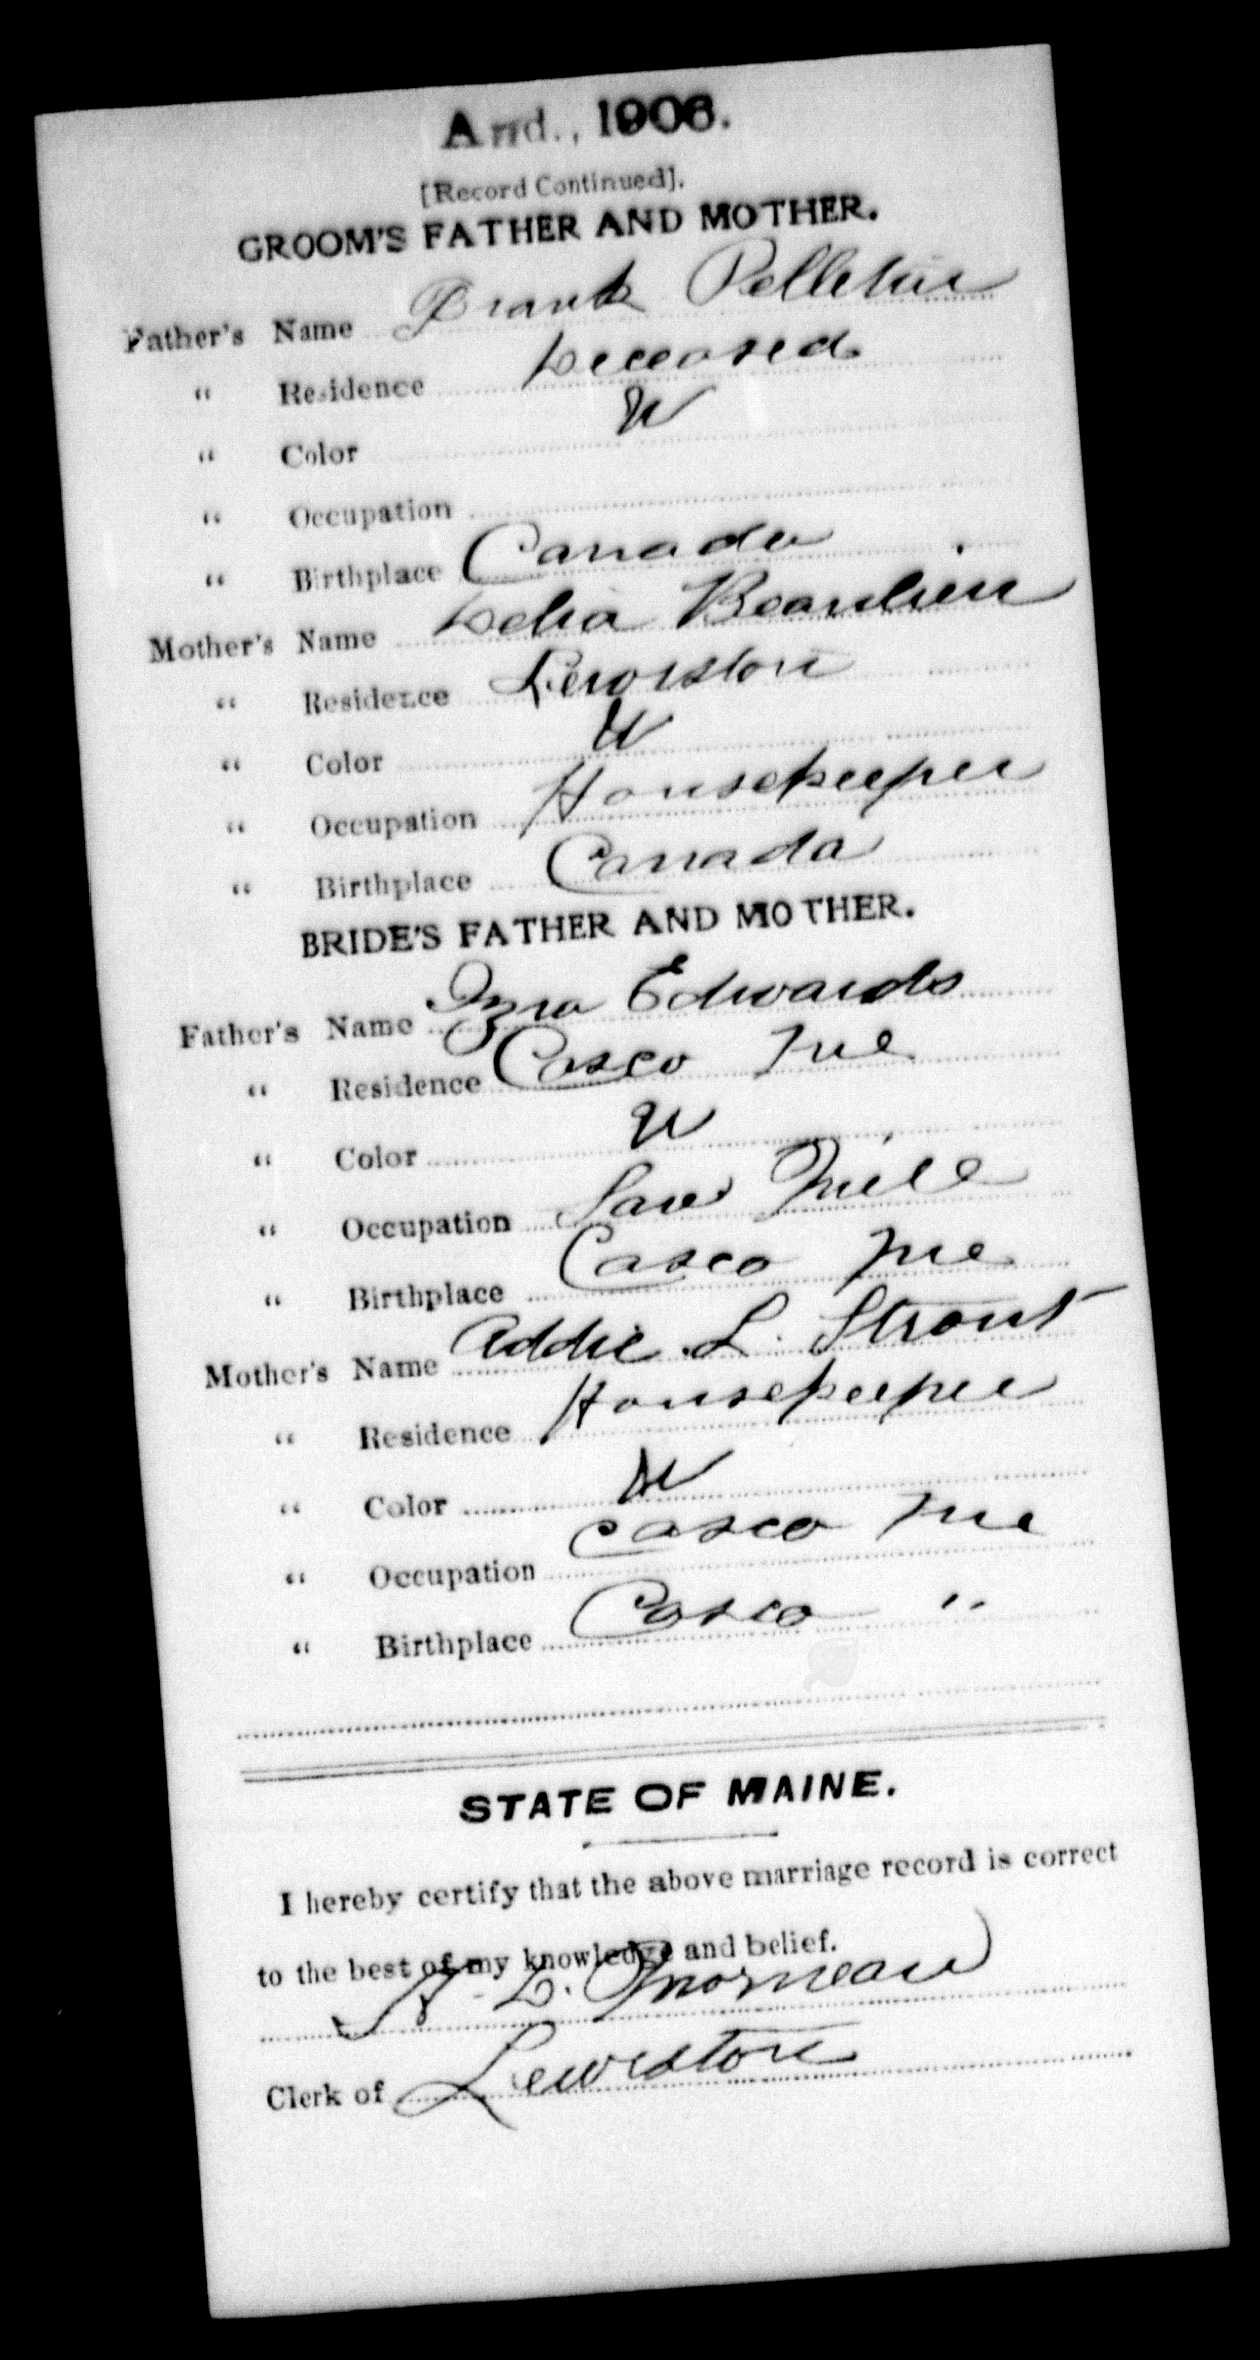 And., 1906.
[Record Continued].
GROOM'S FATHER AND MOTHER.
Father's Name Frank Pelletier
" Residence Deceased
" Color W
" Occupation
" Birthplace Canada
Mother's Name Delia Beaulieu
" Residence Lewiston
" Color W
" Occupation Housekeeper
" Birthplace Canada
BRIDE'S FATHER AND MOTHER.
Father's Name Ezra Edwards
" Residence Casco Me
" Color W
" Occupation Saw Mill
" Birthplace Casco Me
Mother's Name Addie L. Strout
" Residence Housekeeper
" Color W
" Occupation Casco Me
" Birthplace Casco "
STATE OF MAINE.
I hereby certify that the above marriage record is correct
to the best of my knowledge and belief.
F. L. Morneau
Clerk of Lewiston